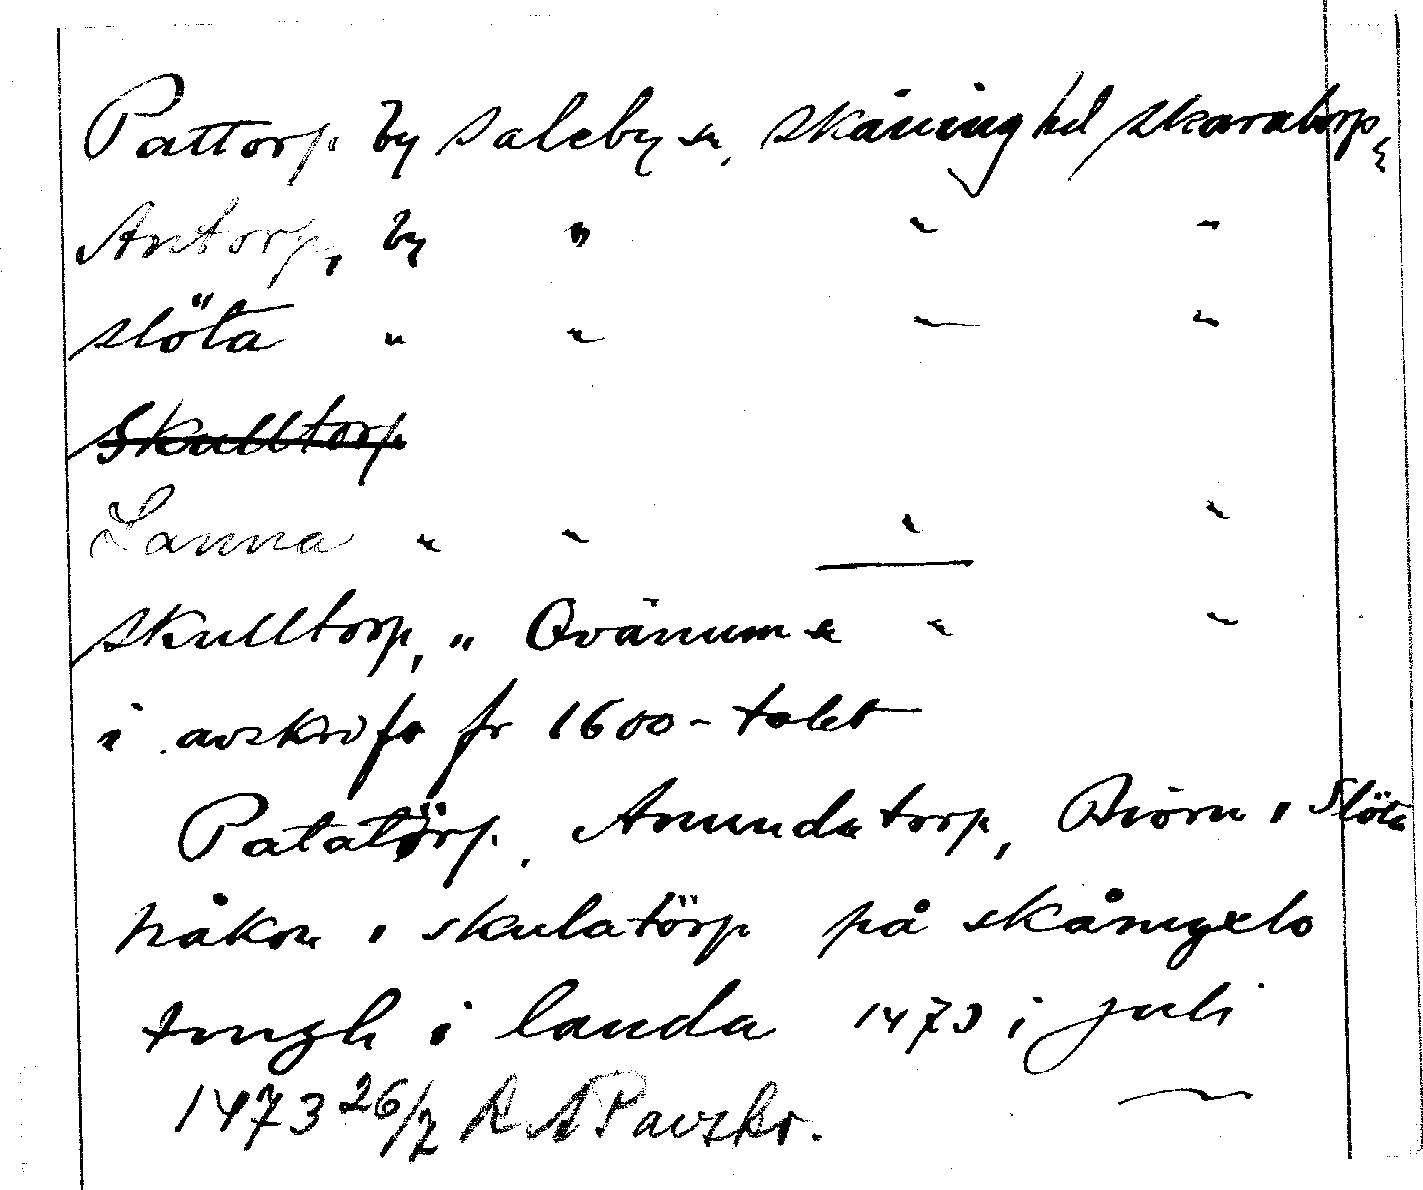 Pattorp by Saleby sn, Skåning hd Skaraborg
Antorp, by " " "
Slöta " " " "
Skulltorp
Lanna " " " "
Skulltorp, " Ovänum sn " "
i avskrift fr 1600-talet
Patatörp, Amundatorp, Biörn i Slöta
håkon i skulatörp på skånyxlo
tingh i landa 1473 i juli
1473 26/7 RAP avskr.